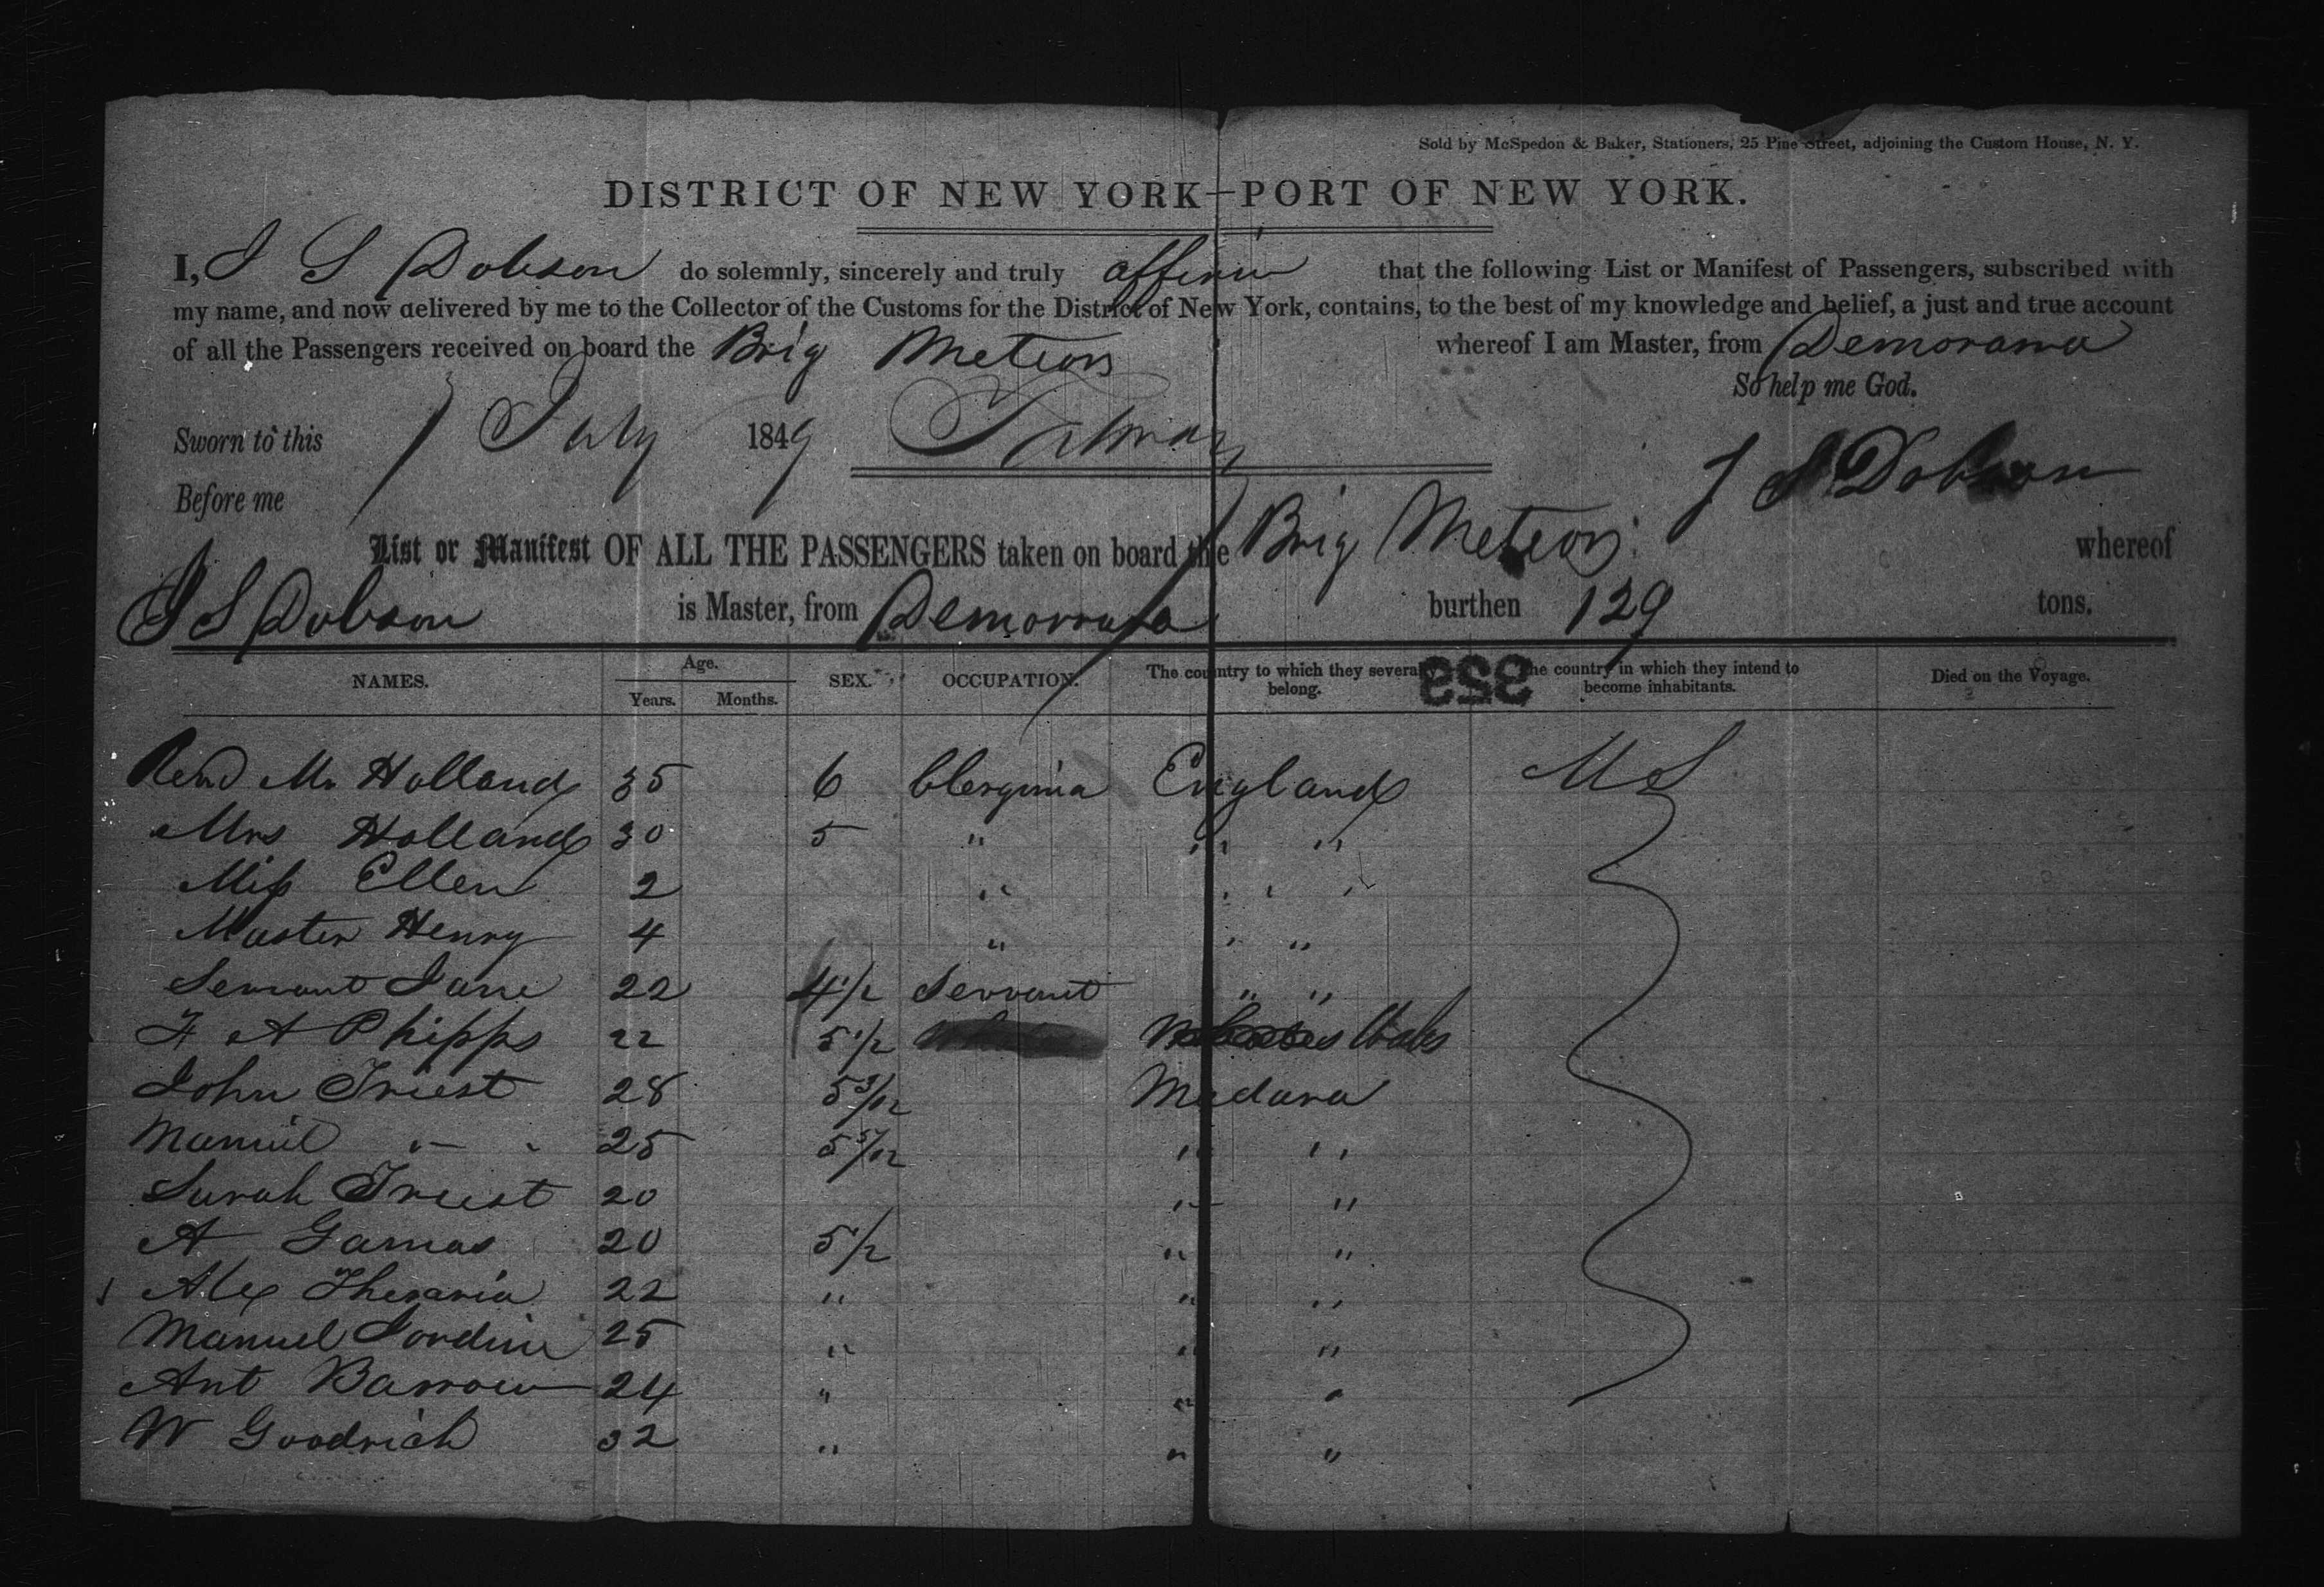 Sold by McSpedon & Baker, Stationers, 25 Pine Street, adjoining the Custom House, N. Y.
DISTRICT OF NEW YORK—PORT OF NEW YORK.
I, J S Dobson do solemnly, sincerely and truly affirm that the following List or Manifest of Passengers, subscribed with
my name, and now delivered by me to the Collector of the Customs for the District of New York, contains, to the best of my knowledge and belief, a just and true account
of all the Passengers received on board the Brig Meteor whereof I am Master, from Demorara
So help me God.
Sworn to this 7 July 1849
J S Dobson
Before me
List or Manifest OF ALL THE PASSENGERS taken on board the Brig Meteor whereof
J S Dobson is Master, from Demorrara burthen 129 tons.
NAMES. Age. Years. Months. SEX. OCCUPATION. The country to which they severally belong. The country in which they intend to become inhabitants. Died on the Voyage.
353
Revd Mr Holland 35 6 England US
Mrs Holland 30 5 " " "
Miss Ellen 2 " " "
Master Henry 4 " " "
Servant Jane 22 4 1/2 Servant " "
F A Phipps 22 5 1/2 States
John Triest 28 5 3/12 Madara
Manuil " " 25 5 5/12 " "
Sarah Triest 20 " "
A Gamas 20 5 1/2 " "
Alex 22 " " "
Manuel Jordine 25 " " "
Ant Barrow 24 " " "
W Goodrich 32 " " "